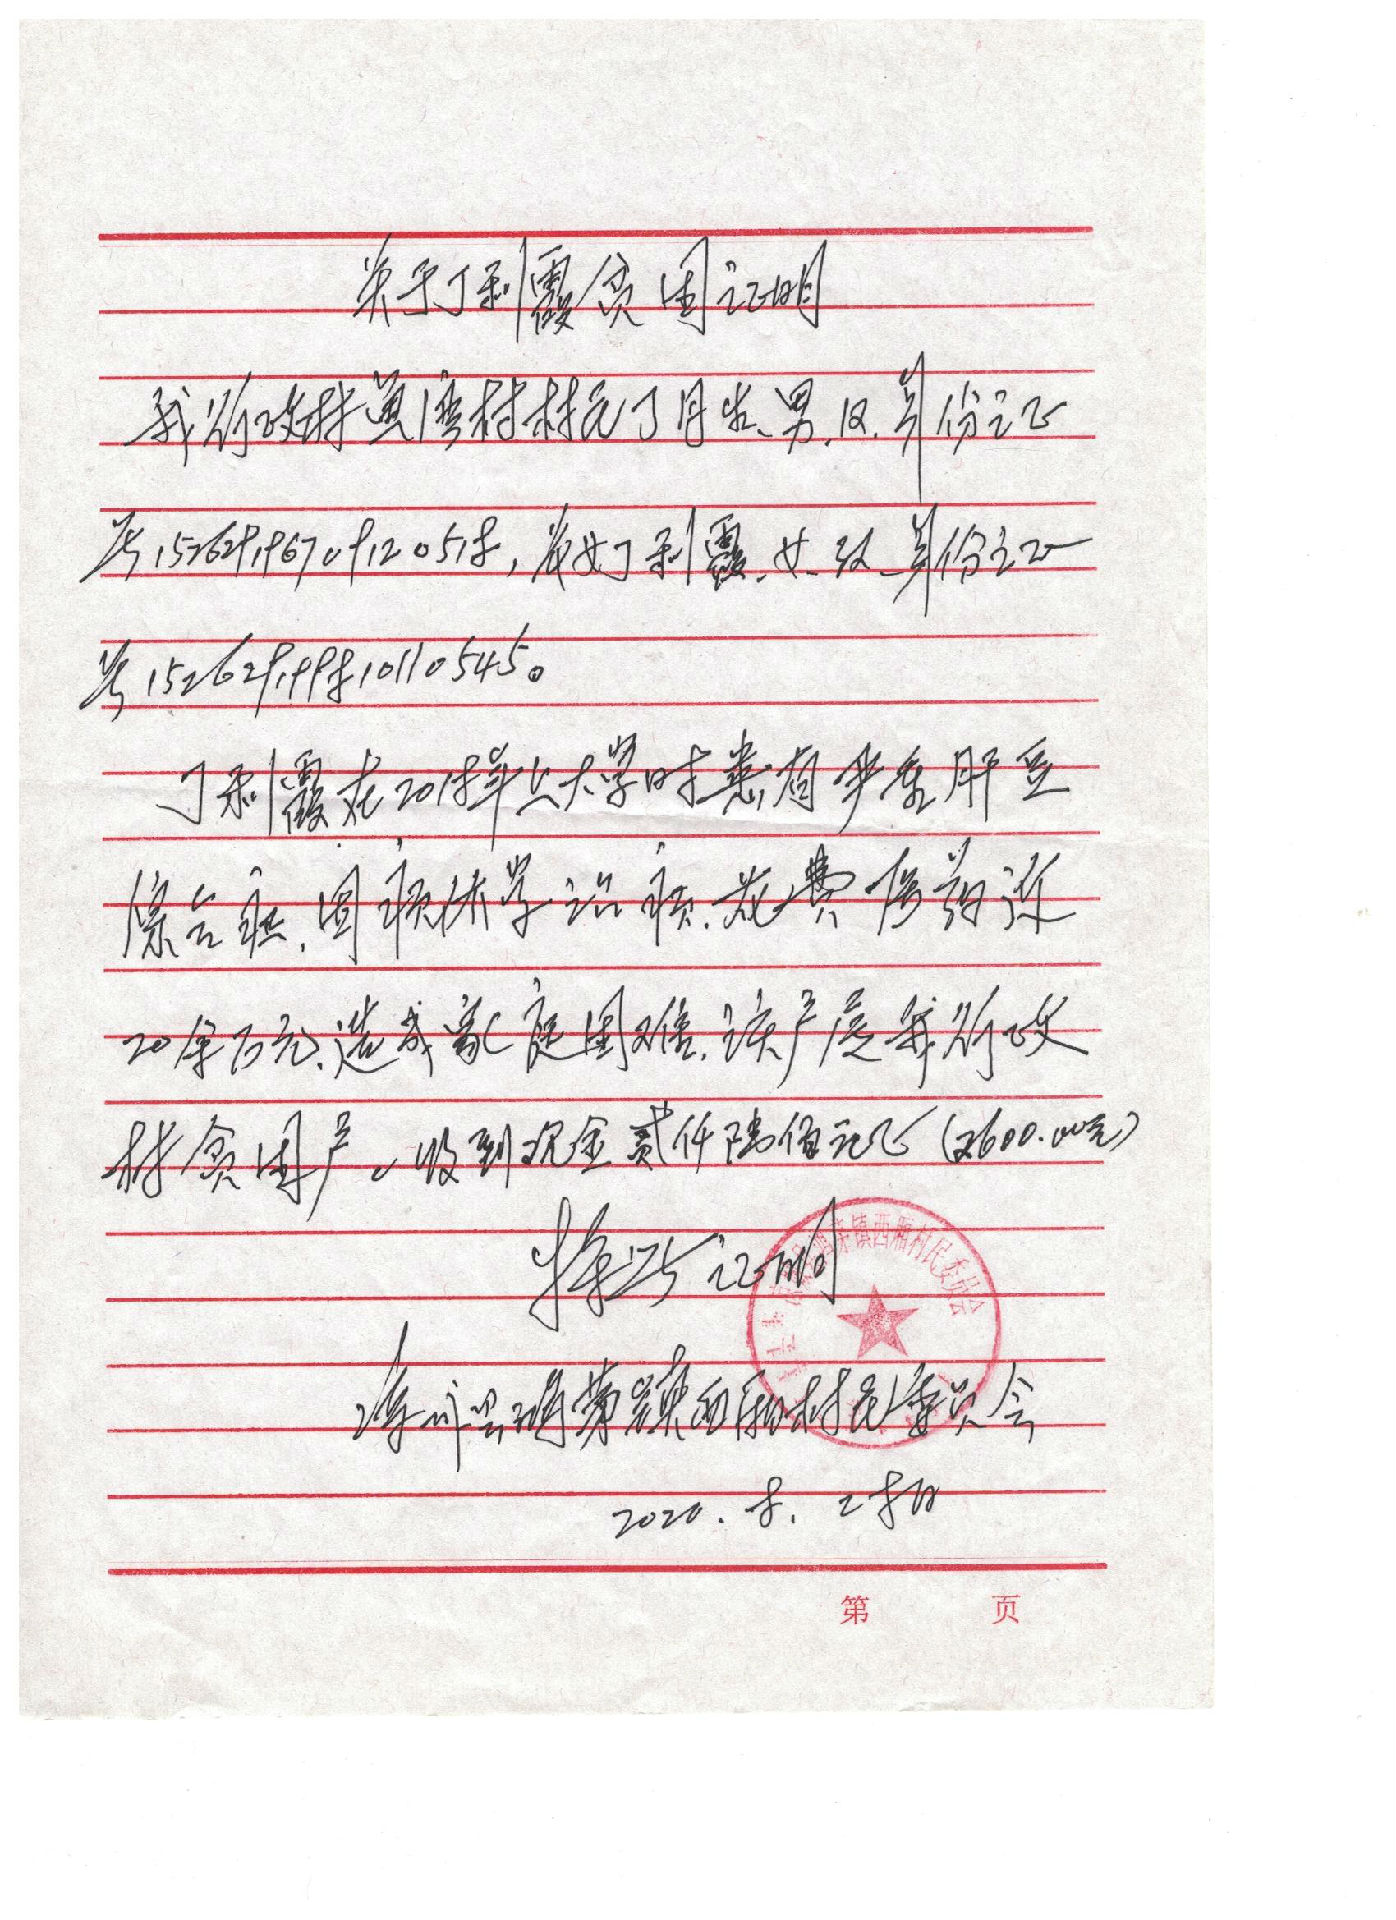 关于丁利霞贫困证明
我行政村黄湾村村民丁月出、男、汉、身份证
号152629196709120518,长女丁利霞、女、汉、身份证
号152629199810110545。
丁利霞在2018年上大学时患有严重肝豆
综合症,因病休学治病,花费将近
20余万元,造成家庭困难,该户是我行政
村贫困户。收到现金贰仟陆佰元正(2600.00元)
特此证明
镇西厢村民委员会
凉城县 镇西厢村民委员会
2020.8.28日
第 页